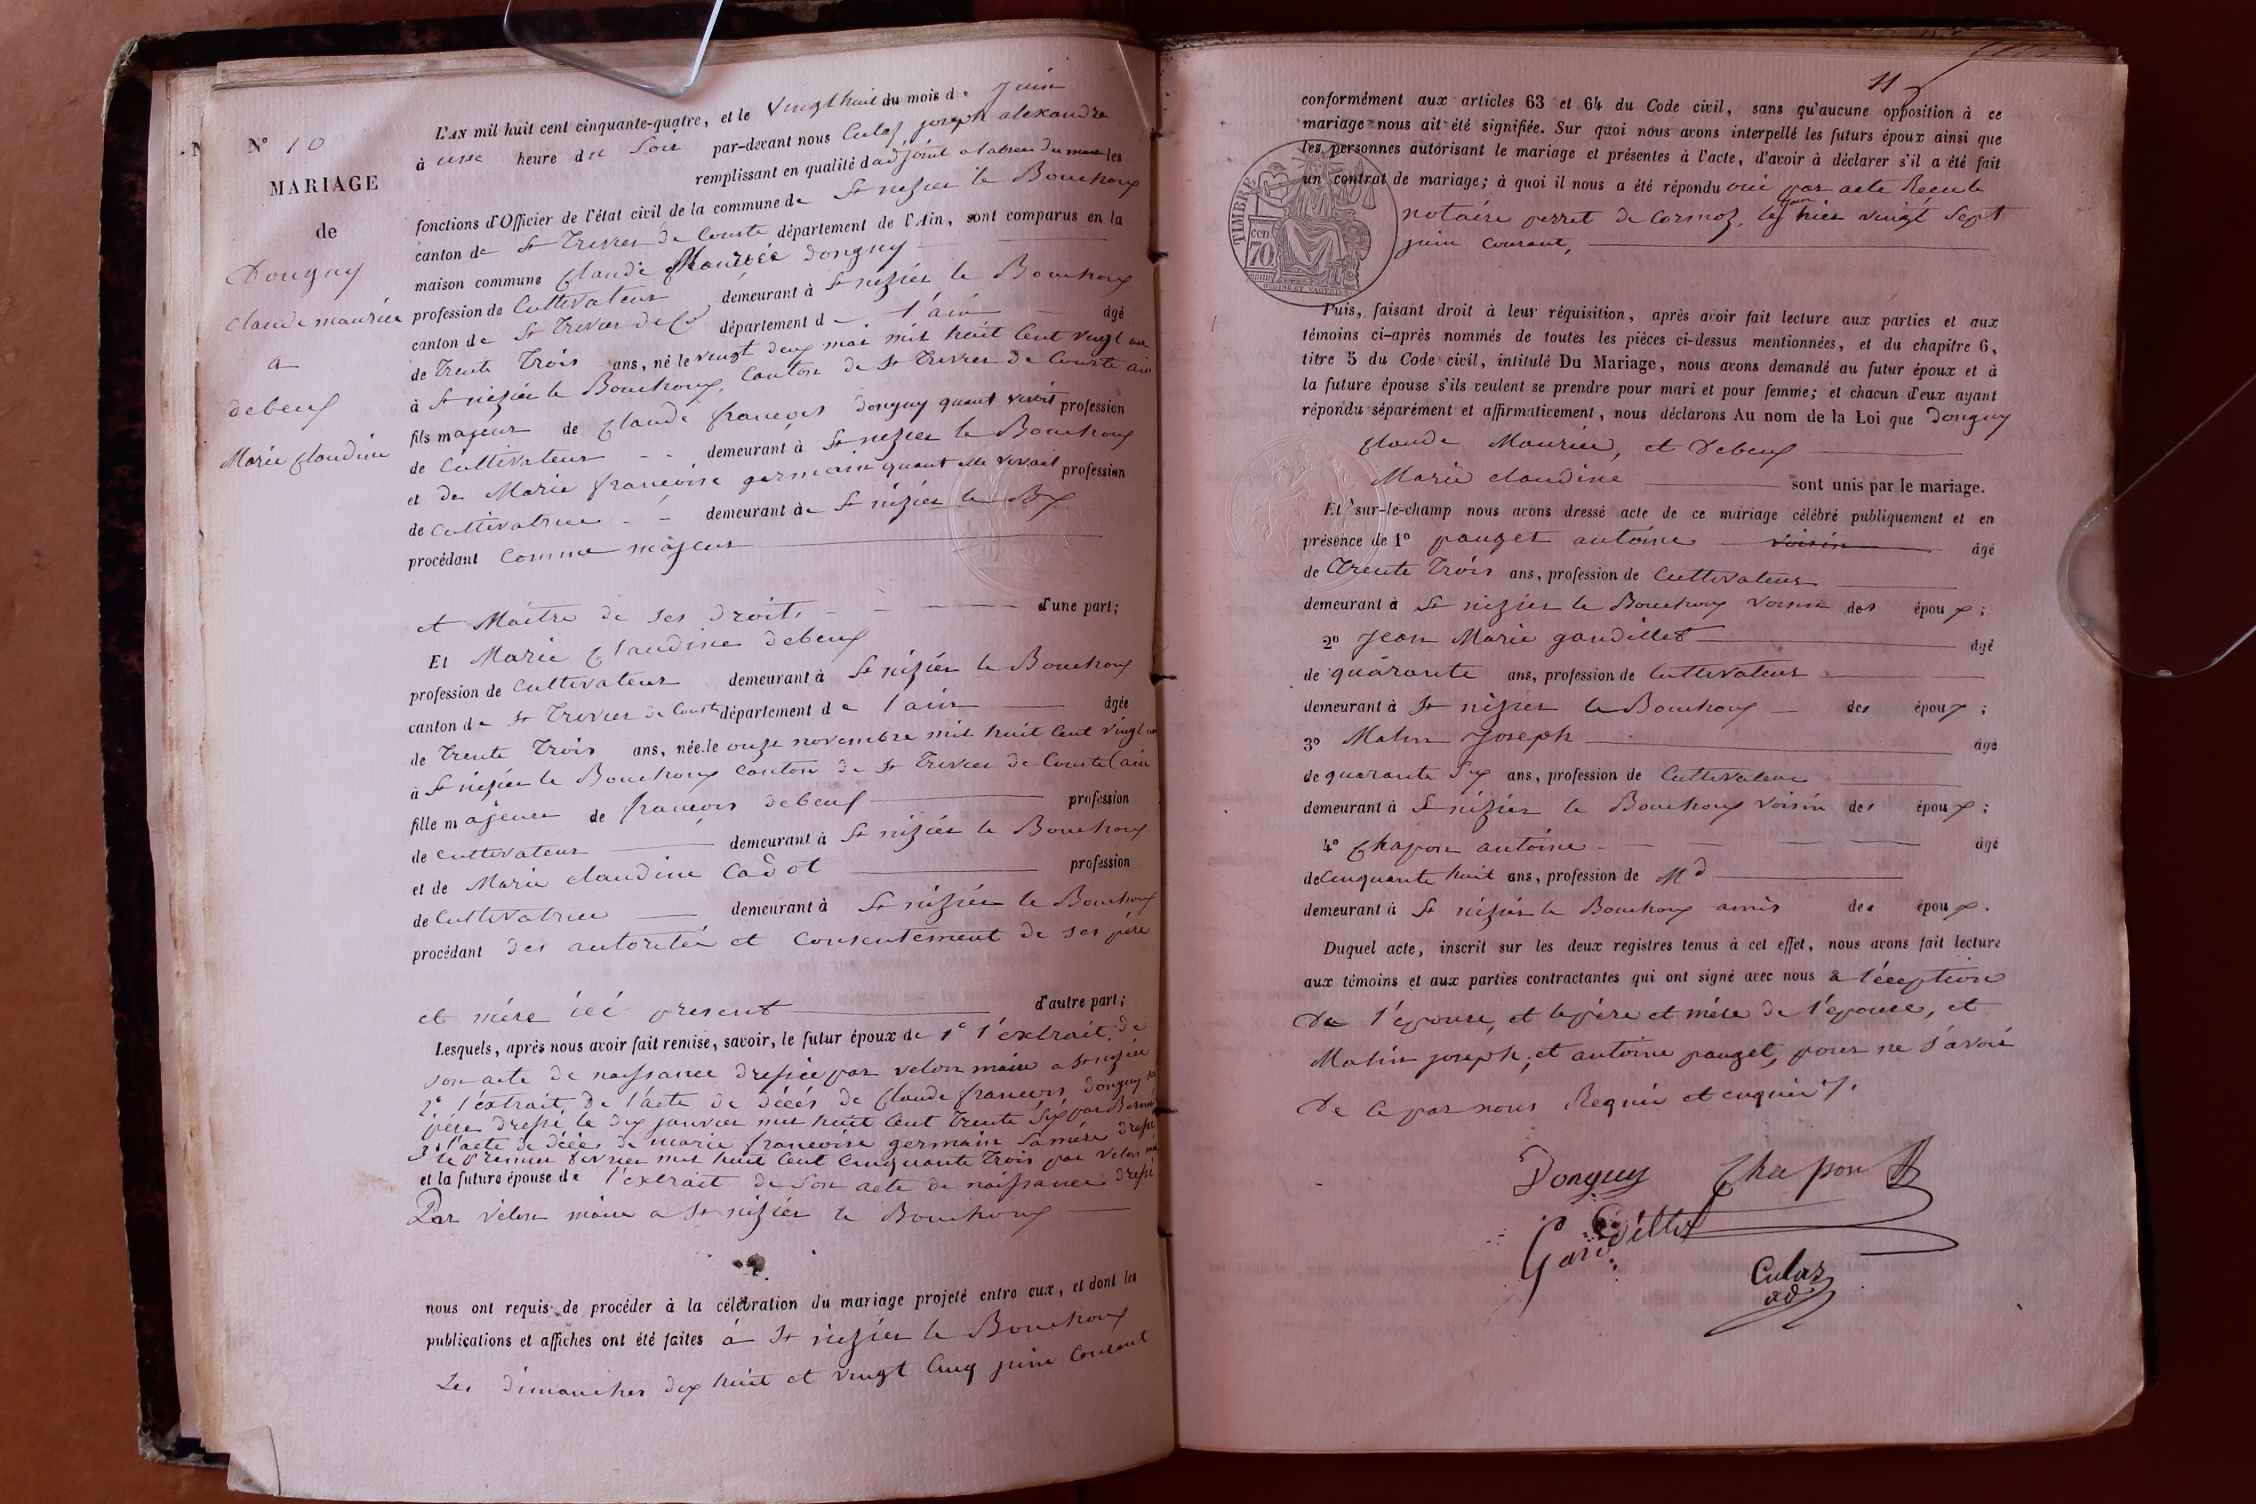 N° 10
MARIAGE
de
Donguy
Claude maurice
a
debeuf
Marie Claudine
L'AN mil huit cent cinquante-quatre, et le Vingt huit du mois de Juin
à une heure du Soir par-devant nous Culaz joseph alexandre
remplissant en qualité d'adjoint a labsence du maire les
fonctions d'Officier de l'état civil de la commune de St nizier le Bouchoux
canton de St Trivier de Courte département de l'Ain, sont comparus en la
maison commune Claude Maurice Donguy
profession de Cultivateur demeurant à St nizier le Bouchoux
canton de St Trivier de Cs département de l'ain âgé
de Trente Trois ans, né le vingt deux mai mil huit Cent vingt un
à St nizier le Bouchoux, Canton de St Trivier de Courte ain
fils majeur de Claude françois Donguy quant vivait profession
de Cultivateur demeurant à St nizier le Bouchoux
et de Marie françoise germain quant elle vivait profession
de Cultivatrice demeurant à St nizier le Bx
procédant Comme majeur
et Maitre de ses droits d'une part;
Et Marie Claudine debeuf
profession de Cultivateur demeurant à St nizier le Bouchoux
canton de St Trivier de Courte département de l'ain âgée
de Trente Trois ans, née le onze novembre mil huit Cent Vingt un
à St nizier le Bouchoux Canton de St Trivier de Courte (ain
fille majeure de françois debeuf profession
de cultivateur demeurant à St nizier le Bouchoux
et de Marie claudine Cadot profession
de Cultivatrice demeurant à St nizier le Bouchoux
procédant des autorité et Consentement de ses père
et mére ici present d'autre part;
Lesquels, après nous avoir fait remise, savoir, le futur époux de 1° l'extrait de
son acte de naissance dressée par velon maire a St nizier
2° l'éxtrait de l'acte de décés de Claude françois donguy son
père dressé le dix janvier mil huit Cent Trente Six par
3° l'acte de décés de marie francoise germain Sa mére dressé
le Premier fevrier mil huit Cent Cinquante Trois par Velon
et la future épouse de l'extrait de Son acte de naissance dressé
Par Velon maire a St nizier le Bouchoux
nous ont requis de procéder à la célébration du mariage projeté entre eux, et dont les
publications et affiches ont été faites à St nizier le Bouchoux
Les dimanches dix huit et vingt Cinq juin Courant
11
conformément aux articles 63 et 64 du Code civil, sans qu'aucune opposition à ce
mariage nous ait été signifiée. Sur quoi nous avons interpellé les futurs époux ainsi que
les personnes autorisant le mariage et présentes à l'acte, d'avoir à déclarer s'il a été fait
un contrat de mariage; à quoi il nous a été répondu oui par acte Recut
notaire perret de Cormoz, hier vingt Sept
juin courant,
TIMBRE
70
Puis, faisant droit à leur réquisition, après avoir fait lecture aux parties et aux
témoins ci-après nommés de toutes les pièces ci-dessus mentionnées, et du chapitre 6,
titre 5 du Code civil, intitulé Du Mariage, nous avons demandé au futur époux et à
la future épouse s'ils veulent se prendre pour mari et pour femme; et chacun d'eux ayant
répondu séparément et affirmativement, nous déclarons Au nom de la Loi que Donguy
Claude Maurice, et Debeuf
Marie claudine sont unis par le mariage.
Et sur-le-champ nous avons dressé acte de ce mariage célébré publiquement et en
présence de 1° pauget antoine voisin âgé
de Trente Trois ans, profession de Cultivateur
demeurant à St nizier le Bouchoux Voisin des époux;
2° Jean Marie gaudillet âgé
de quarante ans, profession de Cultivateur
demeurant à St nizier le Bouchoux des époux;
3° Matin Joseph âgé
de quarante Six ans, profession de Cultivateur
demeurant à St nizier le Bouchoux Voisin des époux;
4° Chapon antoine âgé
de Cinquante huit ans, profession de Md
demeurant à St nizier le Bouchoux amis des époux.
Duquel acte, inscrit sur les deux registres tenus à cet effet, nous avons fait lecture
aux témoins et aux parties contractantes qui ont signé avec nous a l'éception
De l'épouse, et le père et mére de l'épouse, et
Matin joseph, et antoine pauget, pour ne savoir
De ce par nous Requis et enquis /.
Donguy Chapon
Gaudillet
Culaz
ad